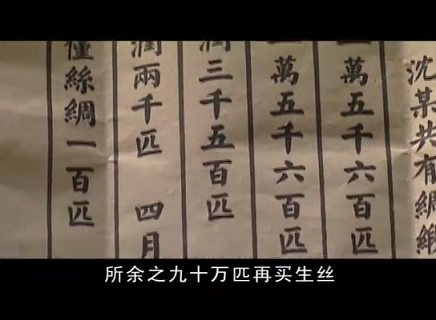 沈某共有綢緞
萬五千六百匹
萬五千六百匹
潤三千五百匹
潤兩千匹 四月
僅絲綢一百匹
所余之九十万匹再买生丝